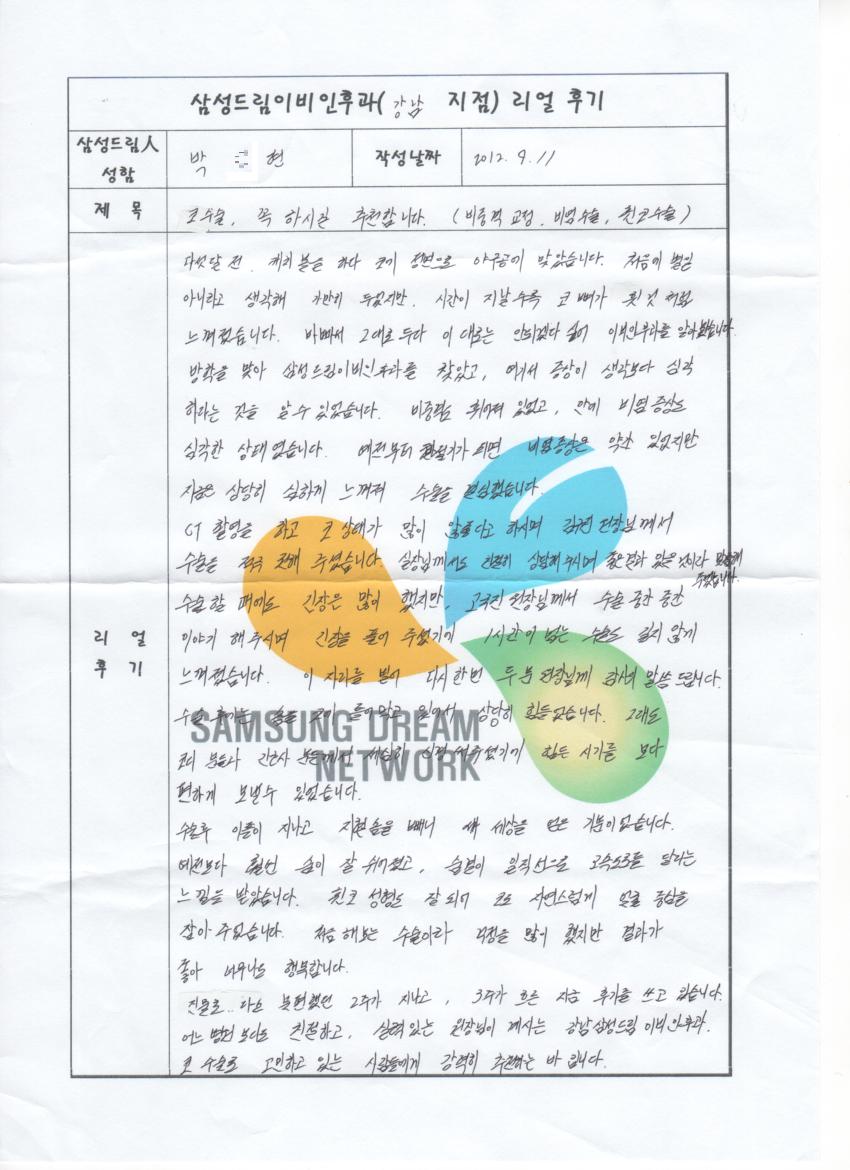 삼성드림이비인후과( 강남 지점) 리얼 후기
삼성드림人 성함
박 현
작성날짜
2012. 9. 11
제 목
코수술, 꼭 하시길 추천합니다. (비중격 교정, 비염수술, 휜코수술)
리 얼
후 기
다섯달 전, 캐치볼을 하다 코가 정면으로 야구공에 맞았습니다. 처음에 별일
아니라고 생각해 가만히 두었지만, 시간이 지날수록 코 뼈가 휜것 처럼
느껴졌습니다. 바빠서 그대로 두다 이 대로는 안되겠다 싶어 이비인후과를 알아봤습니다.
방학을 맞아 삼성드림이비인후과를 찾았고, 여기서 증상이 생각보다 심각
하다는 것을 알 수 있었습니다. 비중격도 휘어져 있었고, 안에 비염증상도
심각한 상태였습니다. 예전부터 환절기가 되면 비염증상은 약간 있었지만
지금은 상당히 심하게 느껴져 수술을 결심했습니다.
CT 촬영을 하고 코 상태가 많이 안좋다고 하시며 원장님께서
수술을 적극 권해 주셨습니다. 실장님께서도 친절히 상담해주시며 좋은결과 있을것이라 말씀해
주셨습니다.
수술 할 때에도 긴장은 많이 했지만, 고국진 원장님께서 수술 중간 중간
이야기 해주시며 긴장을 풀어 주셨기에 1시간이 넘는 수술도 길지 않게
느껴졌습니다. 이 자리를 빌어 다시한번 두분 원장님께 감사의 말씀 드립니다.
수술 후에는 솜을 코에 틀어막고 있어서 상당히 힘들었습니다. 그래도
코디 분들과 간호사 분들께서 세심히 신경써주셨기에 힘든 시기를 보다
SAMSUNG DREAM
NETWORK
편하게 보낼수 있었습니다.
수술후 이틀이 지나고 지혈솜을 빼니 새 세상을 얻은 기분이었습니다.
예전보다 훨씬 숨이 잘 쉬어졌고, 숨결이 일직선으로 고속도로를 달리는
느낌을 받았습니다. 휜코 성형도 잘 되어 코도 자연스럽게 얼굴 중심을
잡아 주었습니다. 처음 해보는 수술이라 걱정을 많이 했지만 결과가
좋아 너무나도 행복합니다.
진물로.. 다소 불편했던 2주가 지나고, 3주가 흐른 지금 후기를 쓰고 있습니다.
어느 병원 보다도 친절하고, 실력있는 원장님이 계시는 강남삼성드림 이비인후과.
코 수술로 고민하고 있는 사람들에게 강력히 추천하는 바 입니다.